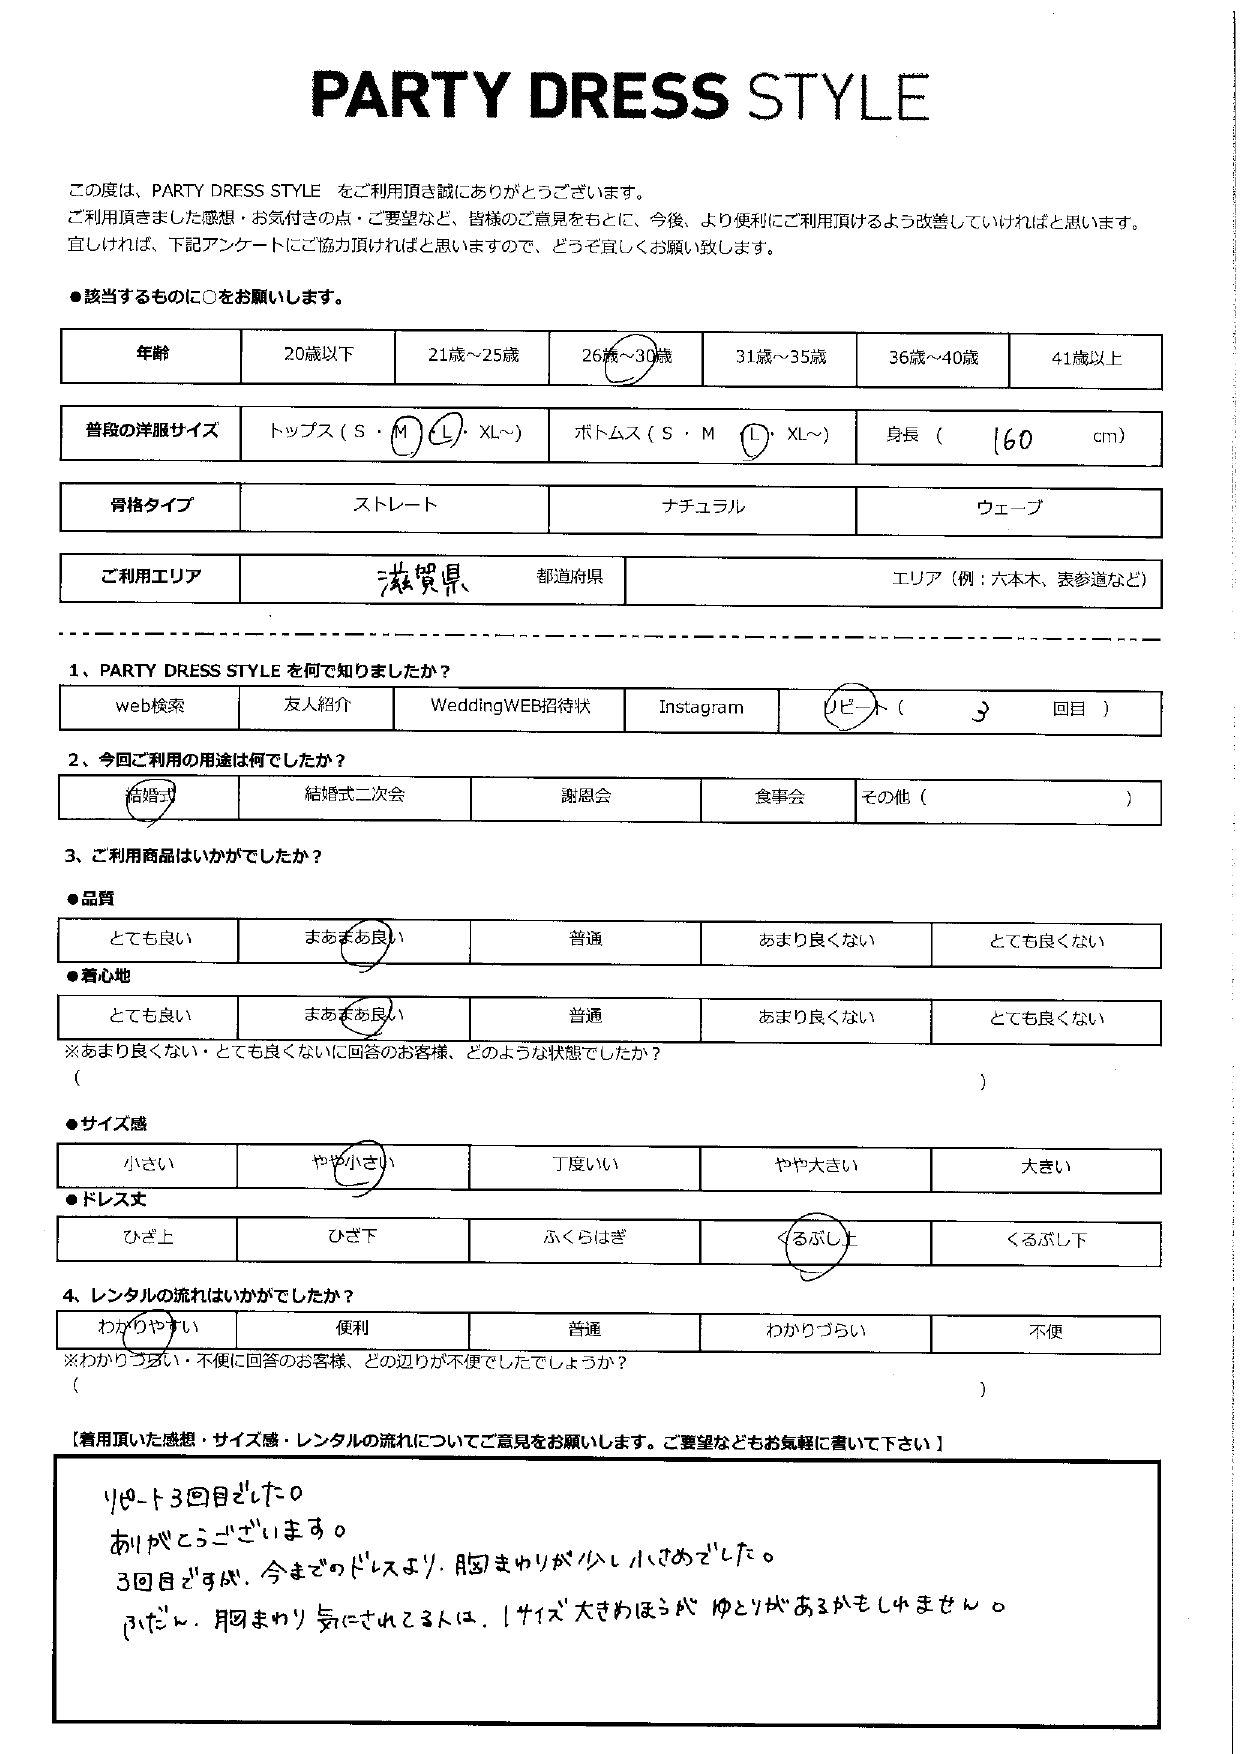 PARTY DRESS STYLE
この度は、PARTY DRESS STYLE をご利用頂き誠にありがとうございます。
ご利用頂きました感想・お気付きの点・ご要望など、皆様のご意見をもとに、今後、より便利にご利用頂けるよう改善していければと思います。
宜しければ、下記アンケートにご協力頂ければと思いますので、どうぞ宜しくお願い致します。
●該当するものに○をお願いします。
年齢 20歳以下 21歳～25歳 26歳～30歳 31歳～35歳 36歳～40歳 41歳以上
普段の洋服サイズ トップス ( S ・ M ・ L ・ XL～) ボトムス ( S ・ M L ・ XL～) 身長 ( 160 cm)
骨格タイプ ストレート ナチュラル ウェーブ
ご利用エリア 滋賀県 都道府県 エリア（例：六本木、表参道など）
1、PARTY DRESS STYLE を何で知りましたか？
web検索 友人紹介 WeddingWEB招待状 Instagram リピート ( 3 回目 )
2、今回ご利用の用途は何でしたか？
結婚式 結婚式二次会 謝恩会 食事会 その他 ( )
3、ご利用商品はいかがでしたか？
●品質
とても良い まあまあ良い 普通 あまり良くない とても良くない
●着心地
とても良い まあまあ良い 普通 あまり良くない とても良くない
※あまり良くない・とても良くないに回答のお客様、どのような状態でしたか？
( )
●サイズ感
小さい やや小さい 丁度いい やや大きい 大きい
●ドレス丈
ひざ上 ひざ下 ふくらはぎ くるぶし上 くるぶし下
4、レンタルの流れはいかがでしたか？
わかりやすい 便利 普通 わかりづらい 不便
※わかりづらい・不便に回答のお客様、どの辺りが不便でしたでしょうか？
( )
【着用頂いた感想・サイズ感・レンタルの流れについてご意見をお願いします。ご要望などもお気軽に書いて下さい】
リピート3回目でした。
ありがとうございます。
3回目ですが、今までのドレスより、胸まわりが少し小さめでした。
ふだん、胸まわり気にされてる人は、1サイズ大きめほうが ゆとりがあるかもしれません。